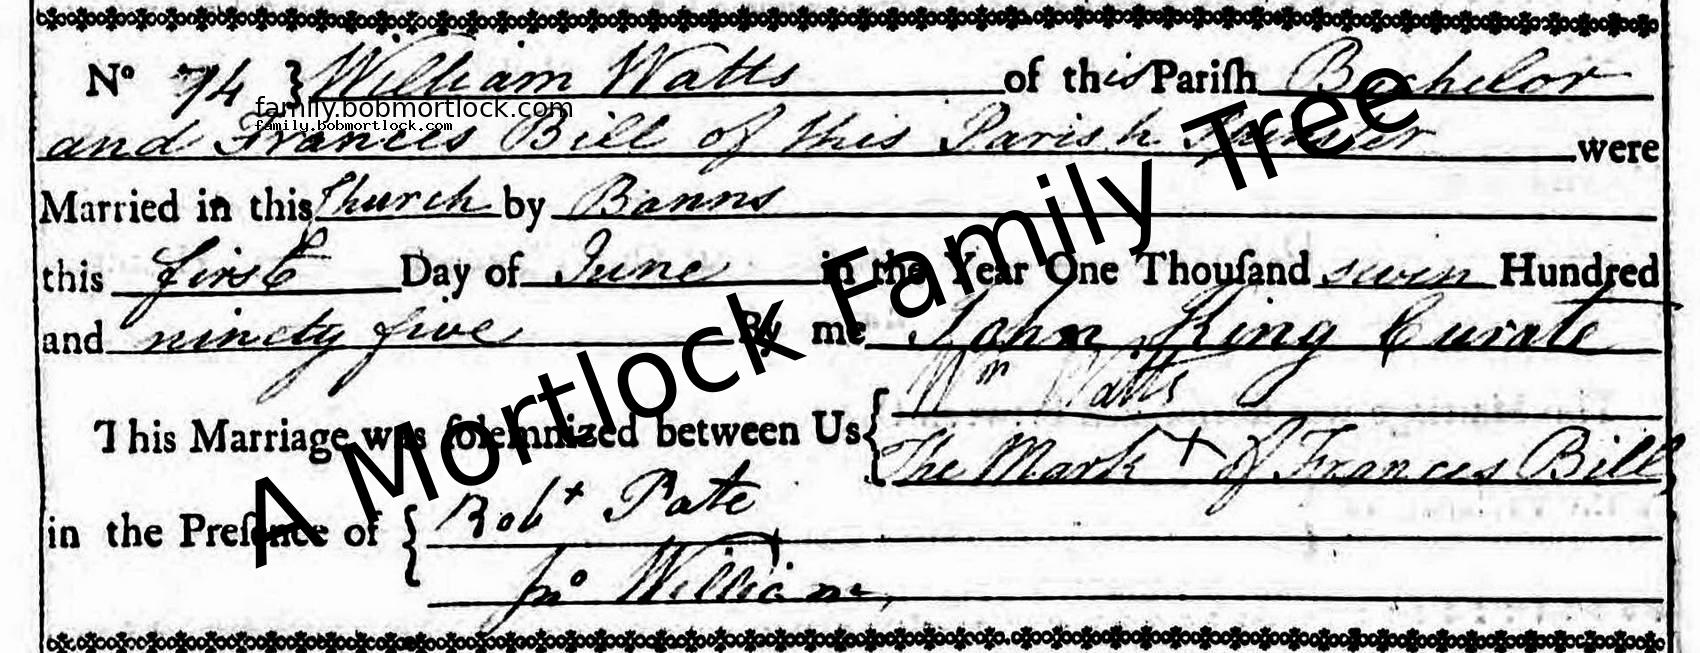 No 74 } William Watts of this Pariſh Bachelor
family.bobmortlock.com
family.bobmortlock.com
and Frances Bill of this Parish Spinster were
Married in this Church by Banns
this first Day of June in the Year One Thouſand seven Hundred
and ninety five By me John King Curate
This Marriage was ſolemnized between Us { Wm Watts
The Mark + of Frances Bill
in the Preſence of { Robt Pate
Jno William
A Mortlock Family Tree